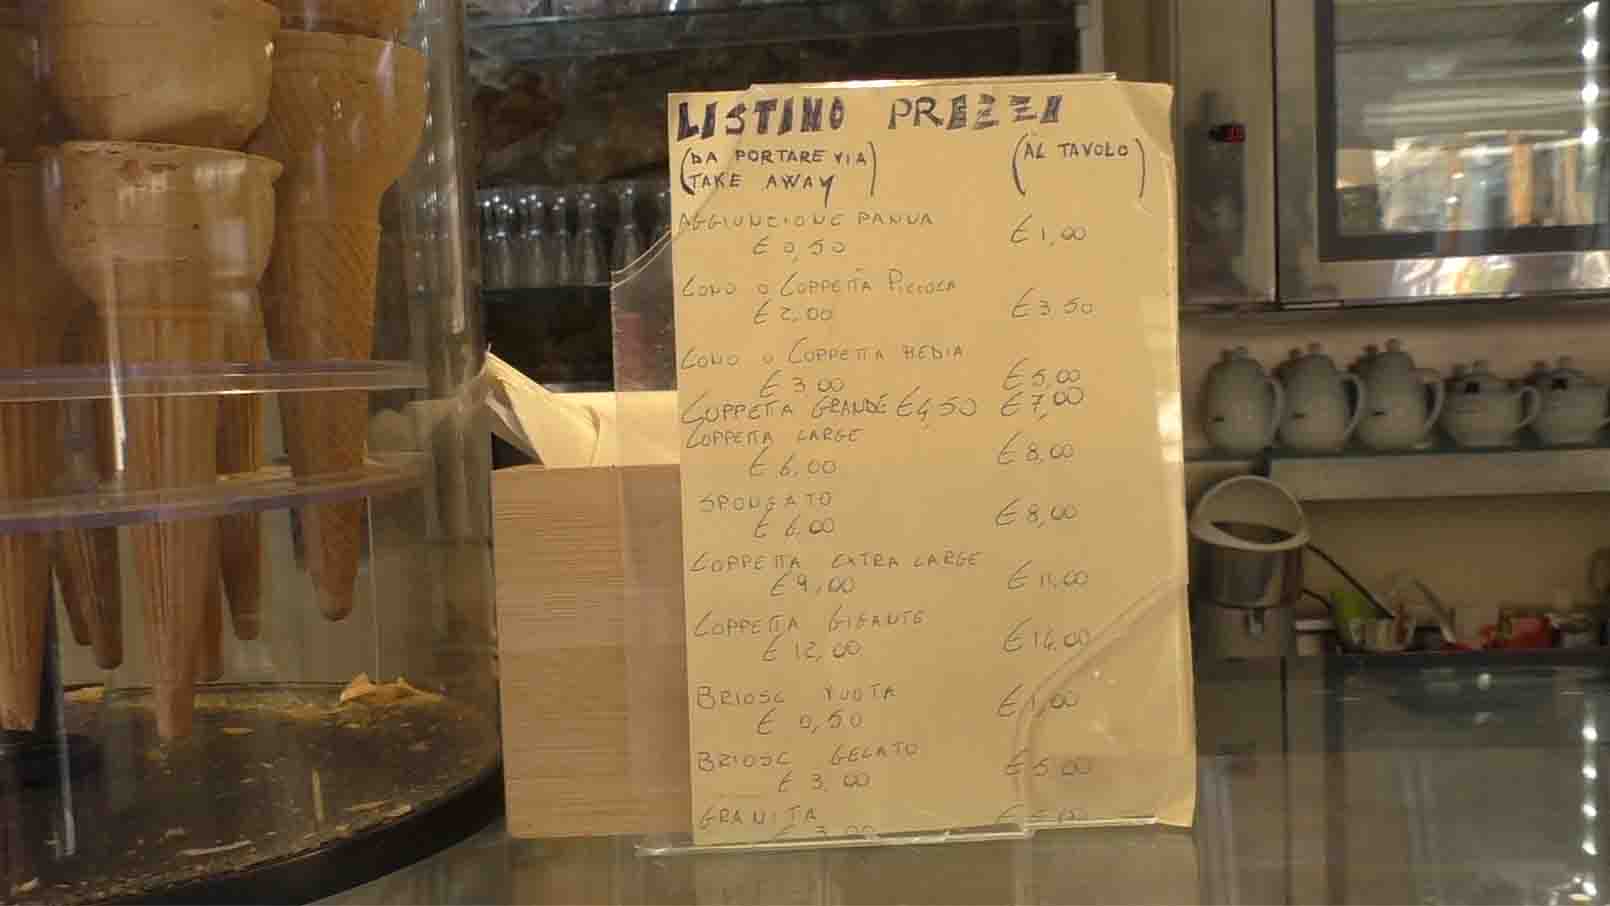 LISTINO PREZZI
(DA PORTARE VIA) (AL TAVOLO)
(TAKE AWAY)
AGGIUNZIONE PANNA
€ 0,50 € 1,00
CONO O COPPETTA PICCOLA
€ 2,00 € 3,50
CONO O COPPETTA MEDIA
€ 3,00 € 5,00
COPPETTA GRANDE € 4,50 € 7,00
COPPETTA LARGE
€ 6,00 € 8,00
SPONGATO
€ 6,00 € 8,00
COPPETTA EXTRA LARGE
€ 9,00 € 11,00
COPPETTA GIGANTE
€ 12,00 € 14,00
BRIOSC VUOTA
€ 0,50 € 1,00
BRIOSC GELATO
€ 3,00 € 5,00
GRANITA
€ 3,00